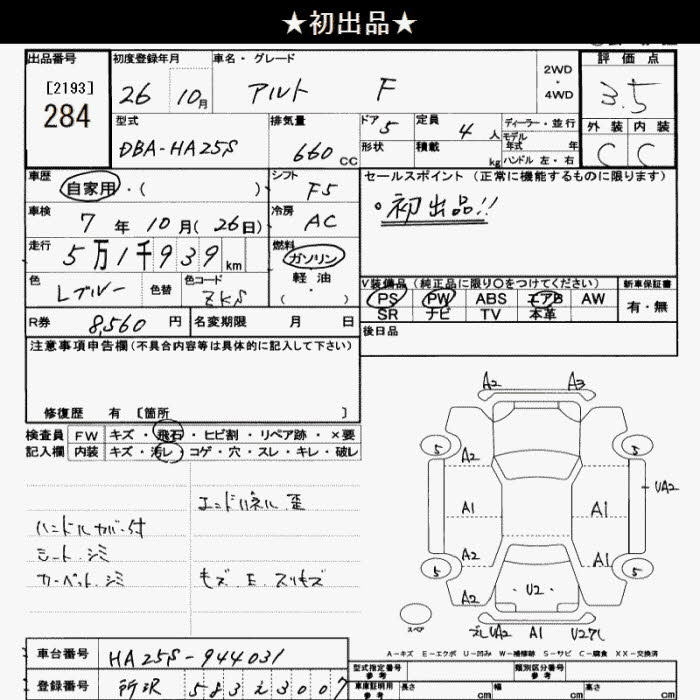 ★初出品★
出品番号 初度登録年月 車名・グレード 評価点
[2193] 284 26 10月 アルト F 2WD・4WD 3.5
型式 排気量 ドア 5 定員 4人 ディーラー・並行 外装 内装
DBA-HA25S 660CC 形状 積載 kg モデル年式 年 ハンドル 左・右 C C
車歴 自家用・( ) シフト F5 セールスポイント(正常に機能するものに限ります)
車検 7年10月(26日) 冷房 AC 。初出品!!
走行 5万1千939km 燃料 ガソリン
軽油・( )
色 Lブルー 色替 色コード ZKS V装備品(純正品に限り○をつけてください) 新車保証書
PS PW ABS エアB AW 有・無
SR ナビ TV 本革
R券 8,560円 名変期限 月 日 後日品
注意事項申告欄(不具合内容等は具体的に記入して下さい)
修復歴 有 [箇所 ]
検査員 FW キズ・飛石・ヒビ割・リペア跡・×要
記入欄 内装 キズ・汚レ・コゲ・穴・スレ・キレ・破レ
エンドパネル 歪
ハンドルカバー付
シート シミ
カーペット シミ
A2 A3
5 5
A2
A1 A1 UA2
A2 A1
5 5
A2 U2
スペア UA2 A1 U2
A-キズ E-エクボ U-凹み W-補修跡 S-サビ C-腐食 XX-交換済
車台番号 HA25S-944031 型式指定番号 参考 類別区分番号 参考
登録番号 所沢 583 え 3007 車庫証明用 参考 長さ cm 幅 cm 高さ cm